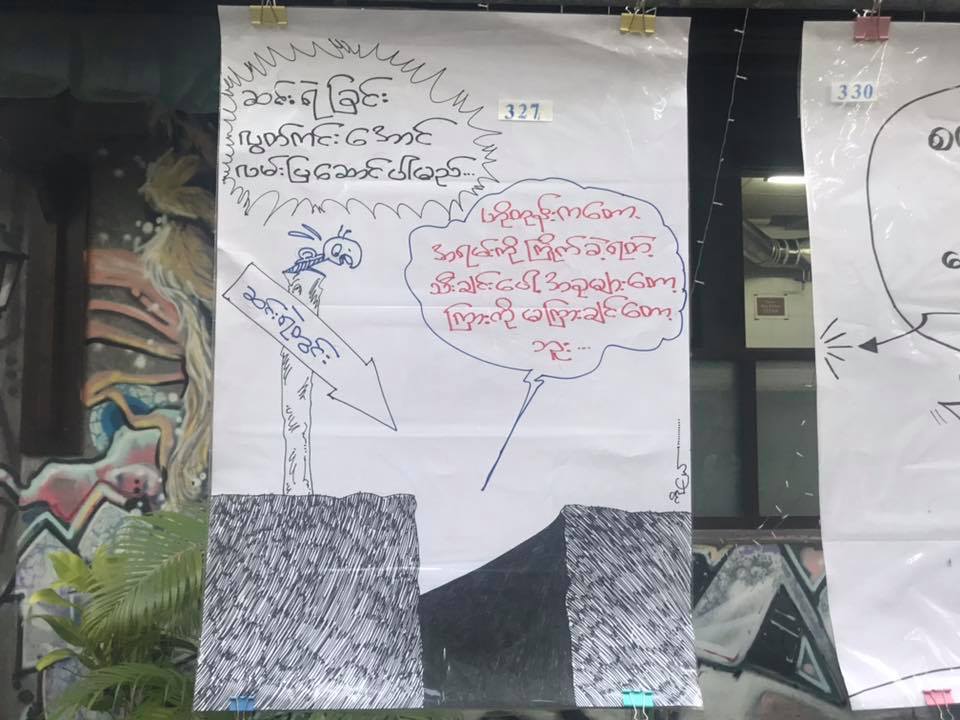 ဆင်းရဲခြင်း
လွတ်ကင်းအောင်
လမ်းပြဆောင်ပါမည်...
327
ဟိုတုန်းကတော့
အရမ်းကိုကြိုက်ခဲ့ရတဲ့
သီးချင်းပေါ့ အခုများတော့
ကြားကို မကြားချင်တော့
ဘူး...
ဆင်းရဲတွင်း
330